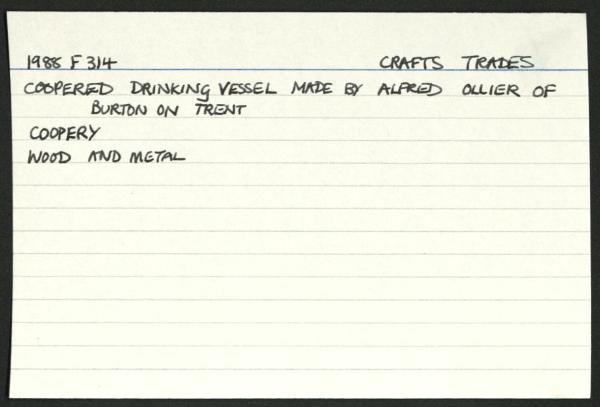 1988 F 314 CRAFTS TRADES
COOPERED DRINKING VESSEL MADE BY ALFRED OLLIER OF
BURTON ON TRENT
COOPERY
WOOD AND METAL